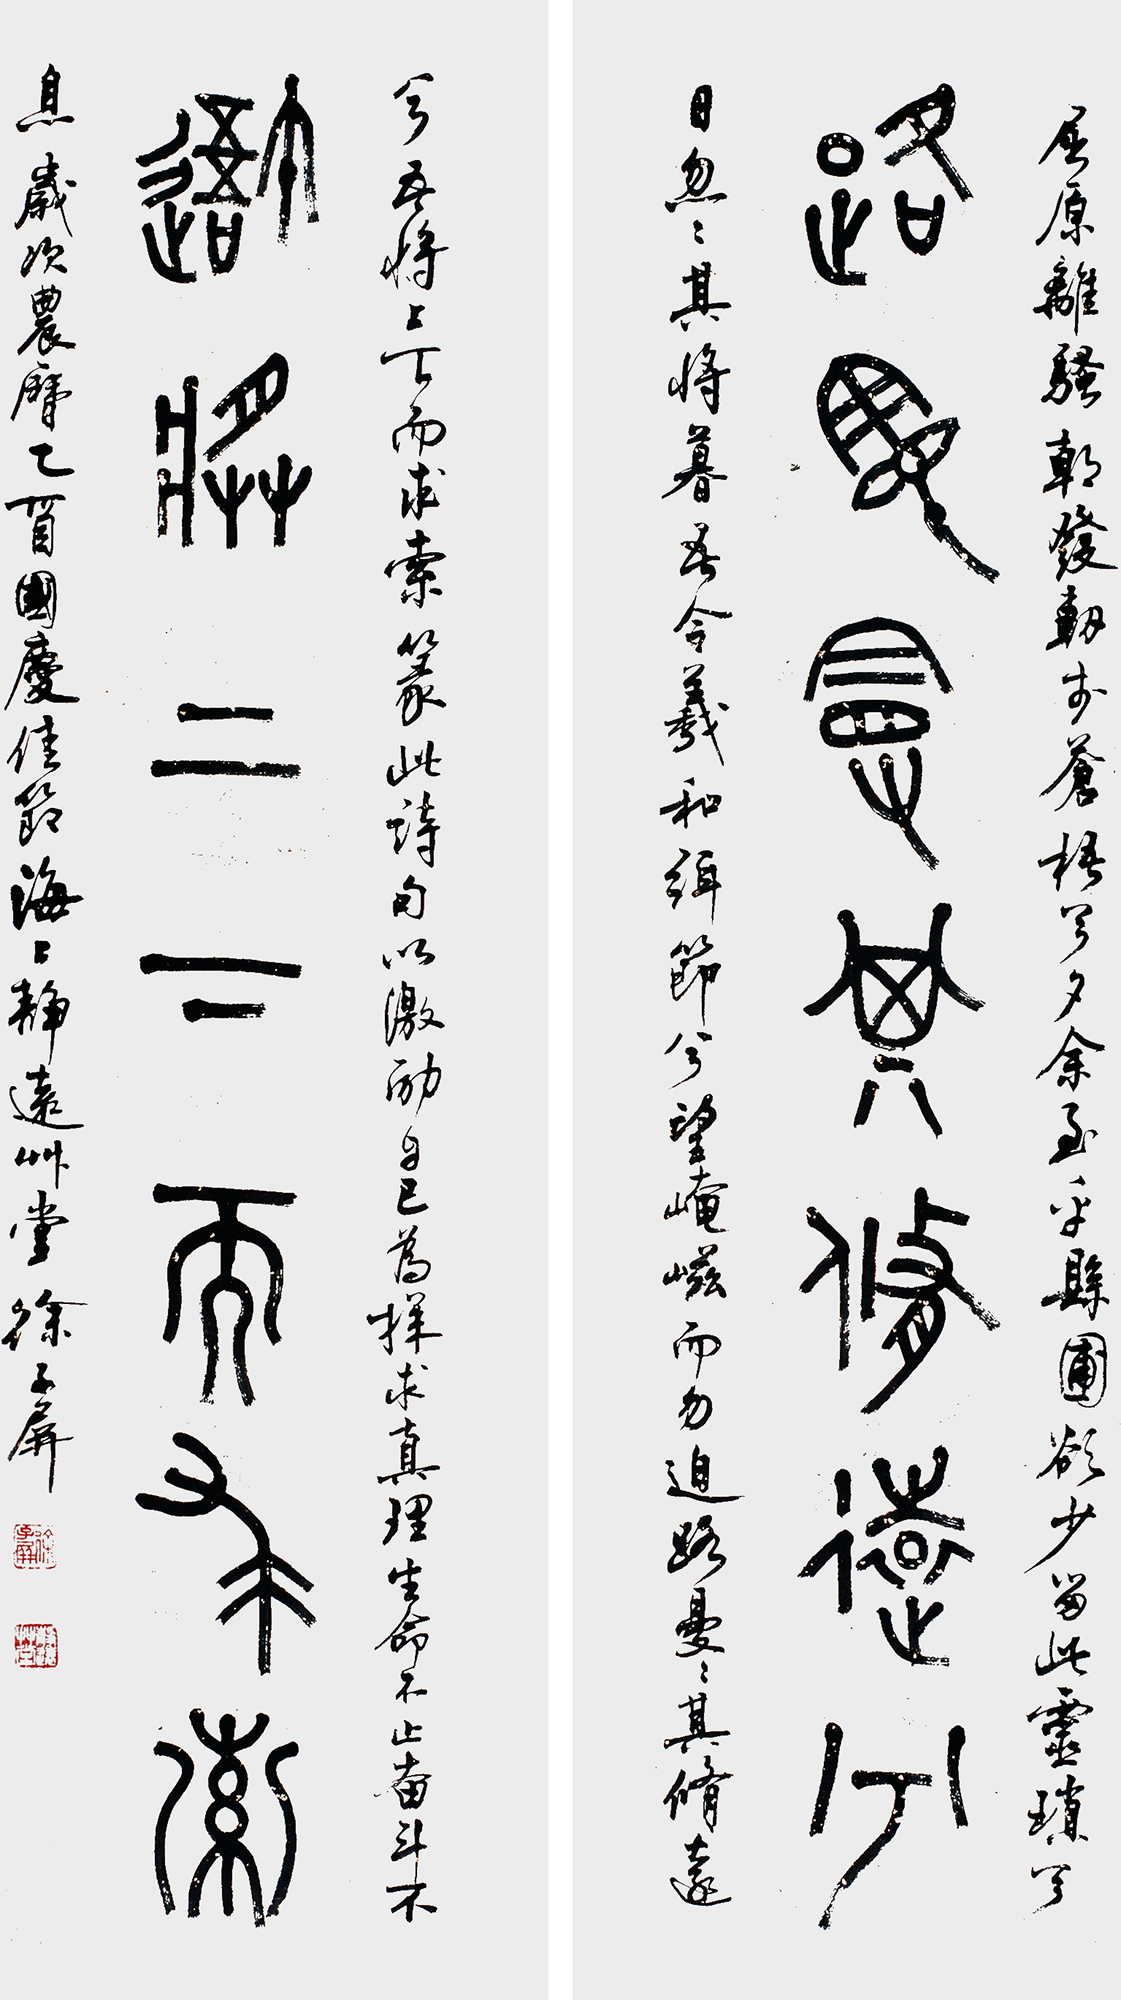 屈原離騷朝發軔於蒼梧兮夕余至乎縣圃欲少留此靈瑣兮
路曼曼其修遠兮
日忽〻其將暮吾令羲和弭節兮望崦嵫而勿迫路曼〻其脩遠
兮吾將上下而求索篆此詩句以激勵自己為探求真理生命不止奋斗不
吾將上下而求索
息歲次農曆乙酉國慶佳節海上靜遠艸堂徐子屏
徐子屏